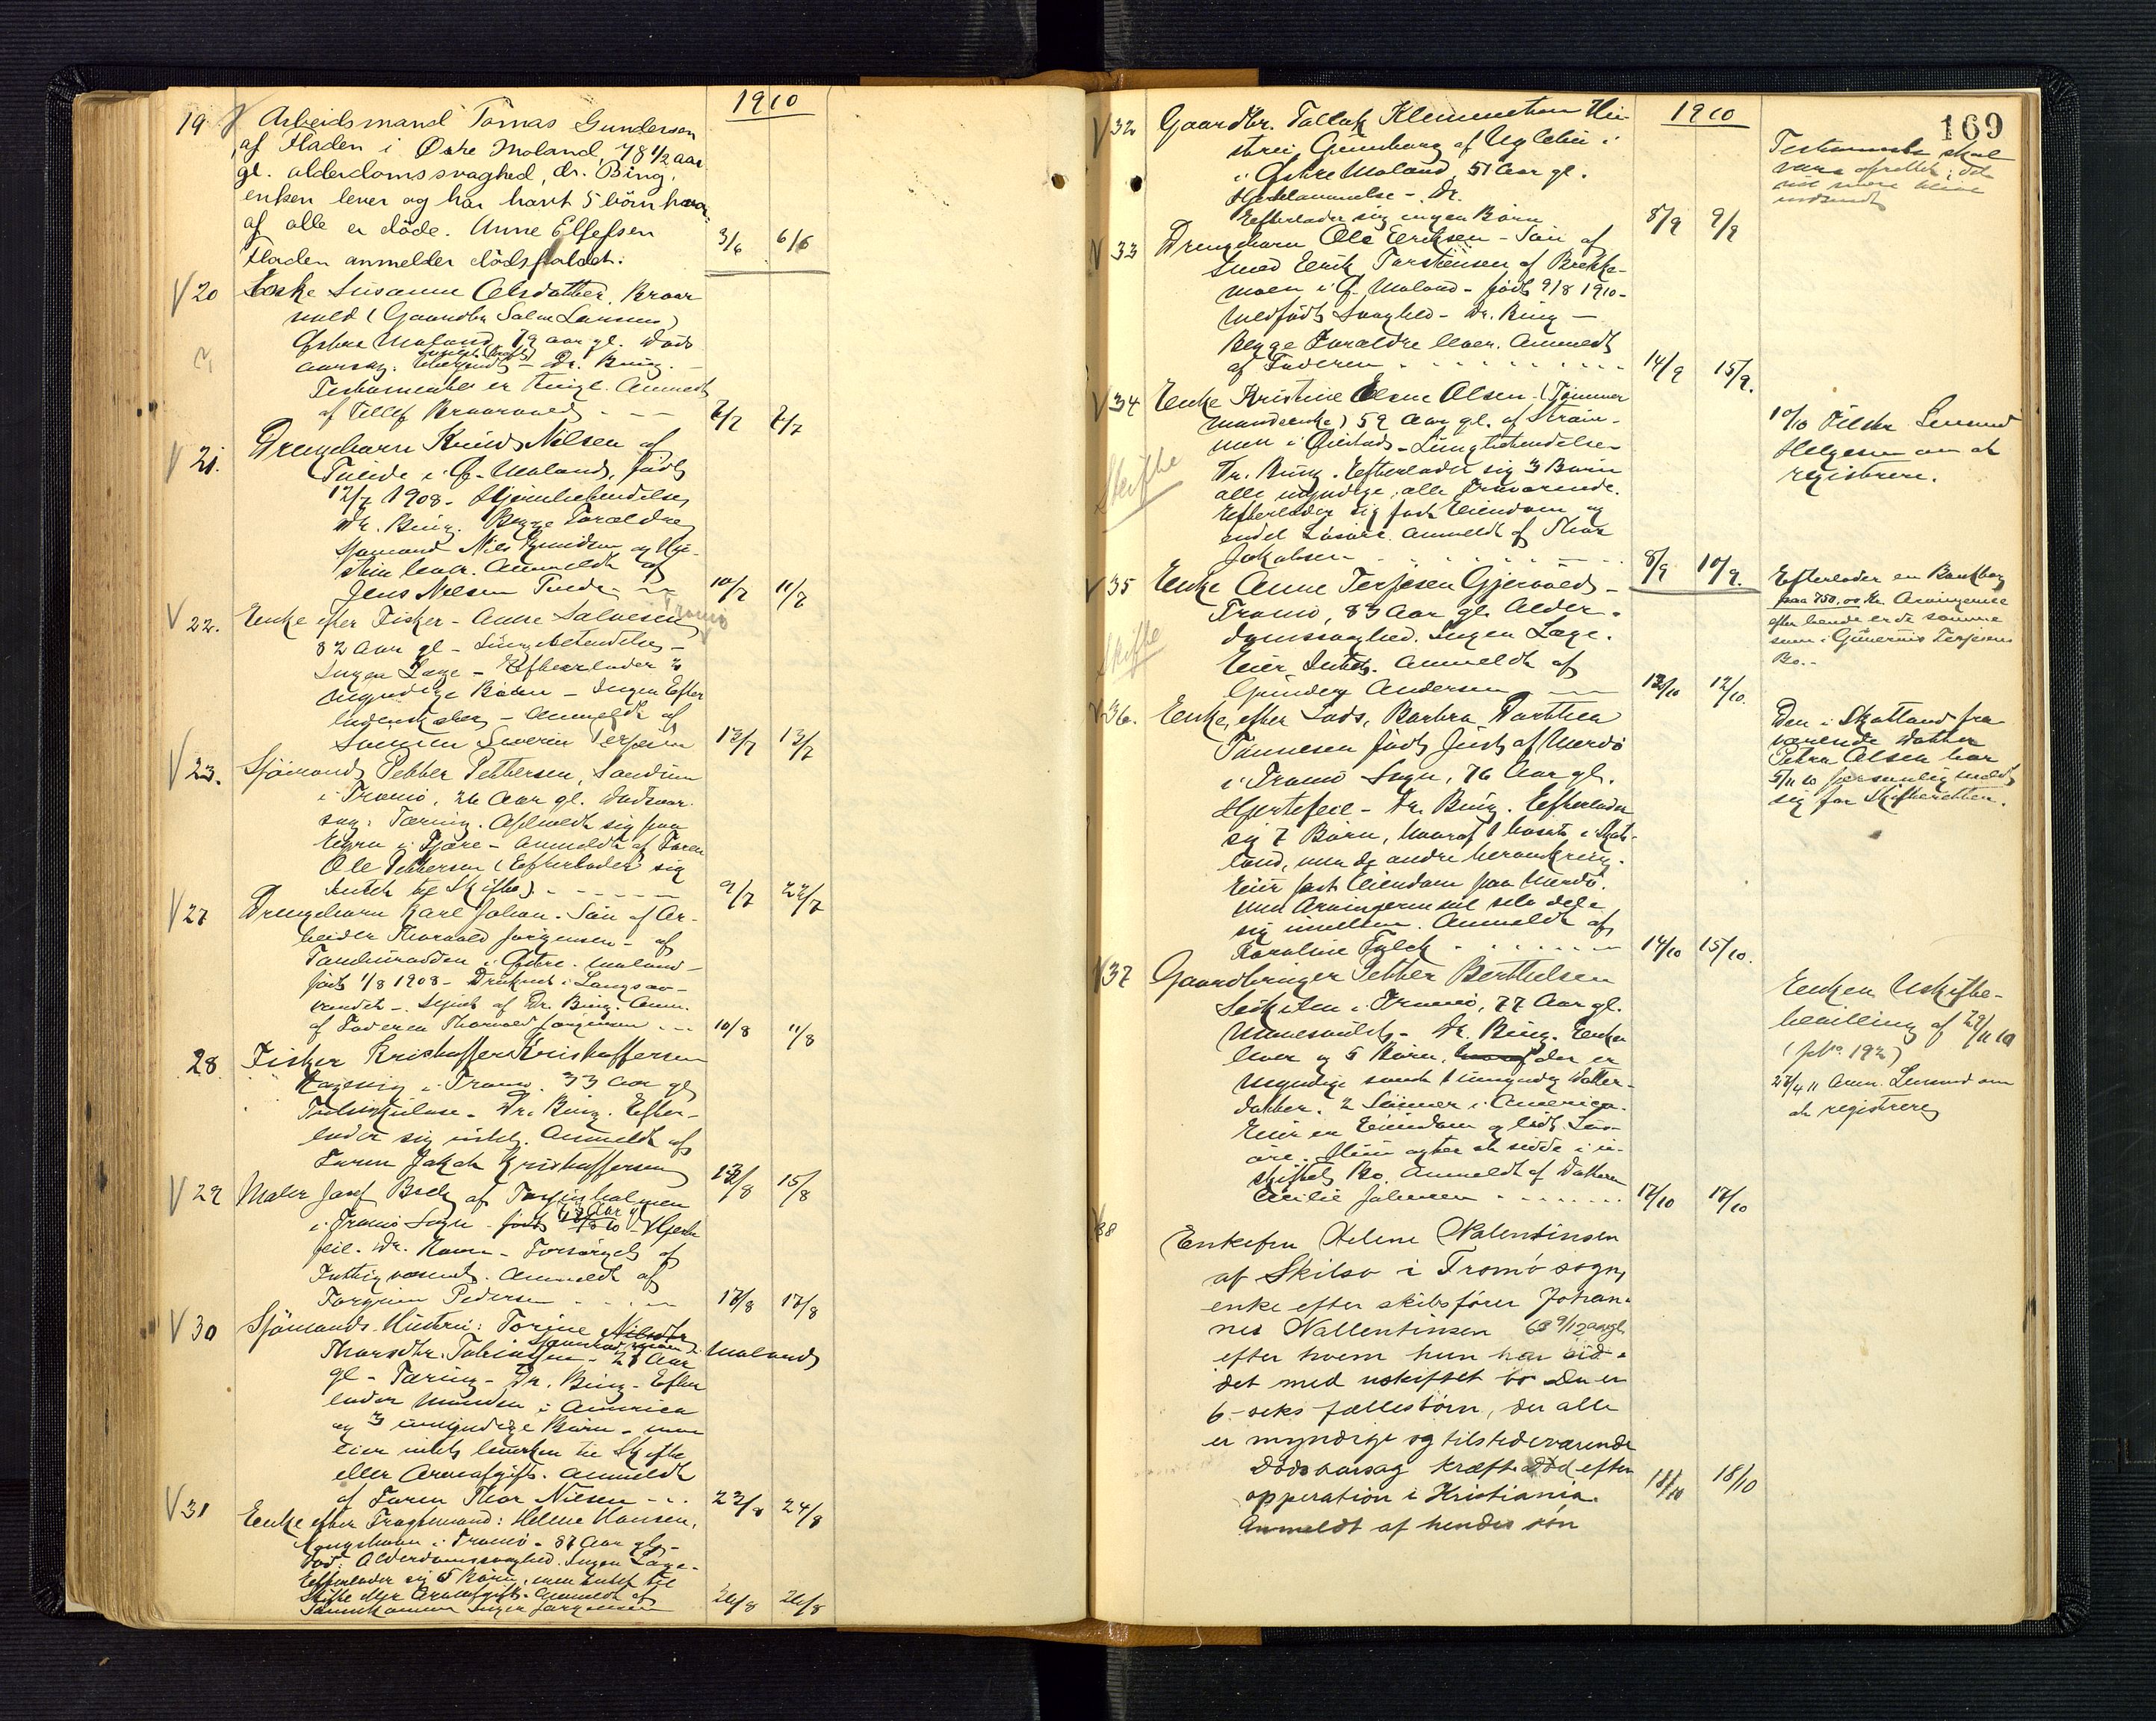 1910
19 Arbeidsmand Tomas Gundersen
af Fladen i Østre Moland, 78 1/2 aar
gl. alderdomssvaghed, dr. Bing.
enken lever og har havt 5 börn hvor-
af alle er döde. Anne Ellefsen
Fladen anmelder dödsfaldet. 3/6 6/6
20 Enke Susanne Olsdatter, Braar
vold (Gaardbr Salve Larsens)
Østre Moland, 79 aar gl. Døds
aarsag: - Dr. Bing. -
Testamenter er tingl. Anmeldt
af Tellef Braarvold - - 2/7 2/7
21. Drengebarn Knud Nilsen af
Tvede i Ø. Moland, født
12/7 1908 - Hjernebetendelse,
Dr. Bing. Begge Forældre
Sjømand Nils Knudsen og Hu-
stru lever. Anmeldt af
Jens Nilsen Tvede 10/7 11/7
22. Enke efter Fisker - Anne Salvesen Tromö
82 Aar gl - Lungebetendelse -
Ingen Læge - Efterlader 3
myndige Börn - Ingen Efter
ladenskaber - Anmeldt af
Sönnen Severin Terjesen 13/7 13/7
23. Sjömand Petter Pettersen, Sandum
i Tromö, 26 Aar gl. Dødsaar
sag: Tæring. Opholdt sig paa
i Fjære - Anmeldt af Faren
Ole Pettersen (Efterlader sig
Intet til Skifte) - - - - - 9/7 22/7
27 Drengebarn Karl Johan. Sön af Ar-
beider Thorvald Jörgensen - af
i Østre Moland -
född 1/8 1908 - Druknet i Langsæ-
vandet -. Synet af Dr. Bing. Anm.
af Faderen Thorvald Jörgensen - - 10/8 11/8
28. Fisker Kristoffer Kristoffersen
Hagevig i Tromö. 33 Aar gl
Tuberkulose. Dr. Bing. Efter-
lader sig intet. Anmeldt af
Faren Jakob Kristoffersen 13/8 15/8
29 Maler Josef Beck af Torjusholmen
i Tromö Sogn - Hjerte
feil. Dr. - Forsörget af
Fattigvæsenet. Anmeldt af
Torgrim Pedersen 17/8 17/8
30 Sjömands Hustru: Torine
Thorsdtr. Tobiassen - 28 Aar Moland
gl - Tæring - Dr. Bing. Efter
lader Manden i Amerika
og 3 umyndige Börn - men
eier intet hverken til Skifte
eller Arveafgift. Anmeldt
af Faren Thor Nilsen - . . 23/8 24/8
31 Enke efter Fragtemand: Helene Hansen,
Kongshavn i Tromö - 87 Aar gl -
Död: Alderdomssvaghed. Ingen Læge -
Efterlader sig 5 Börn, men intet til
Skifte eller Arveafgift. Anmeldt af
Inger Jörgensen 26/8 26/8
169
1910
32 Gaardbr. Tallak Klemmetsen Hu-
stru, Gunborg af Uglebu i
i Østre Moland, 51 Aar gl.
Hjertelammelse - Dr.
Efterlader sig ingen Börn 8/9 9/9
Testamente skal
være oprettet; det
vil senere blive
indsendt
33 Drengebarn Ole Eriksen - Sön af
Smed Erik Torstensen af Brekke-
moen i Ø. Moland - født 9/8 1910 -
Medfödt Svaghed - Dr. Bing -
Begge Forældre lever. Anmeldt
af Faderen . . . . . . . . 14/9 15/9.
34 Enke Kristine Elene Olsen (Tömmer
mandsenke) 59 Aar gl. af Strøm-
men i Øiestad - Lungebetendelse -
Dr. Bing. Efterlader sig 3 Börn
alle myndige, alle
Efterlader sig fast Eiendom og
endel Lösöre. Anmeldt af Thor
Jakobsen 8/9 10/9.
Skifte
10/10 Lensmd
Helgesen om at
registrere.
35 Enke Anne Terjesen Gjervold -
Tromö, 83 Aar gl. Alder-
domssvaghed. Ingen Læge.
Eier Intet. Anmeldt af
Gunder Andersen 12/10 12/10.
Skifte
Efterlader en Bankbog
paa 750,00 Kr. Arvingerne
efter hende er de samme
som i Terjesens
Bo. -
36. Enke efter Lods, Barbra Dorthea
Tönnesen född Just af Merdö
i Tromö Sogn, 76 Aar gl.
Hjertefeil - Dr. Bing. Efterlader
sig 7 Börn, hvoraf 1 bosat i Skot-
land, men de andre heromkring.
Eier fast Eiendom paa Merdö.
Men Arvingerne vil selv dele
sig imellem. Anmeldt af
Karoline Falck . . . . . 14/10 15/10.
Den i Skotland fra
værende Datter
Petra Olsen har
5/11 10 personlig meldt
sig for Skifteretten.
37 Gaardbruger Petter Berthelsen
i Tromö, 77 Aar gl.
- Dr. Bing. Enken
lever og 5 Börn, der er
myndige samt 1 umyndig Datter-
datter. 2 Sönner i America.
Eier en Eiendom og lidt Lös-
öre. Hun agter at sidde i u-
skiftet Bo. Anmeldt af Datteren
Cecilie Johnsen . . . . . 17/10 17/10
Enken Uskifte-
bevilling af 29/11 10
(pkt. 192)
27/4 11 Anm. Lensmd om
at registrere
38 Enkefru Helene Valentinsen
af Skilsö i Tromö sogn,
enke efter skibsfører Johan-
nes Vallentinsen 63 9/12 aar gl.
efter hvem hun har sid-
det med uskiftet bo Der er
6 - seks fællesbörn, der alle
er myndige og tilstedeværende
Dödsaarsag kræft död efter
opperation i Kristiania.
Anmeldt af hendes sön 18/10 18/10